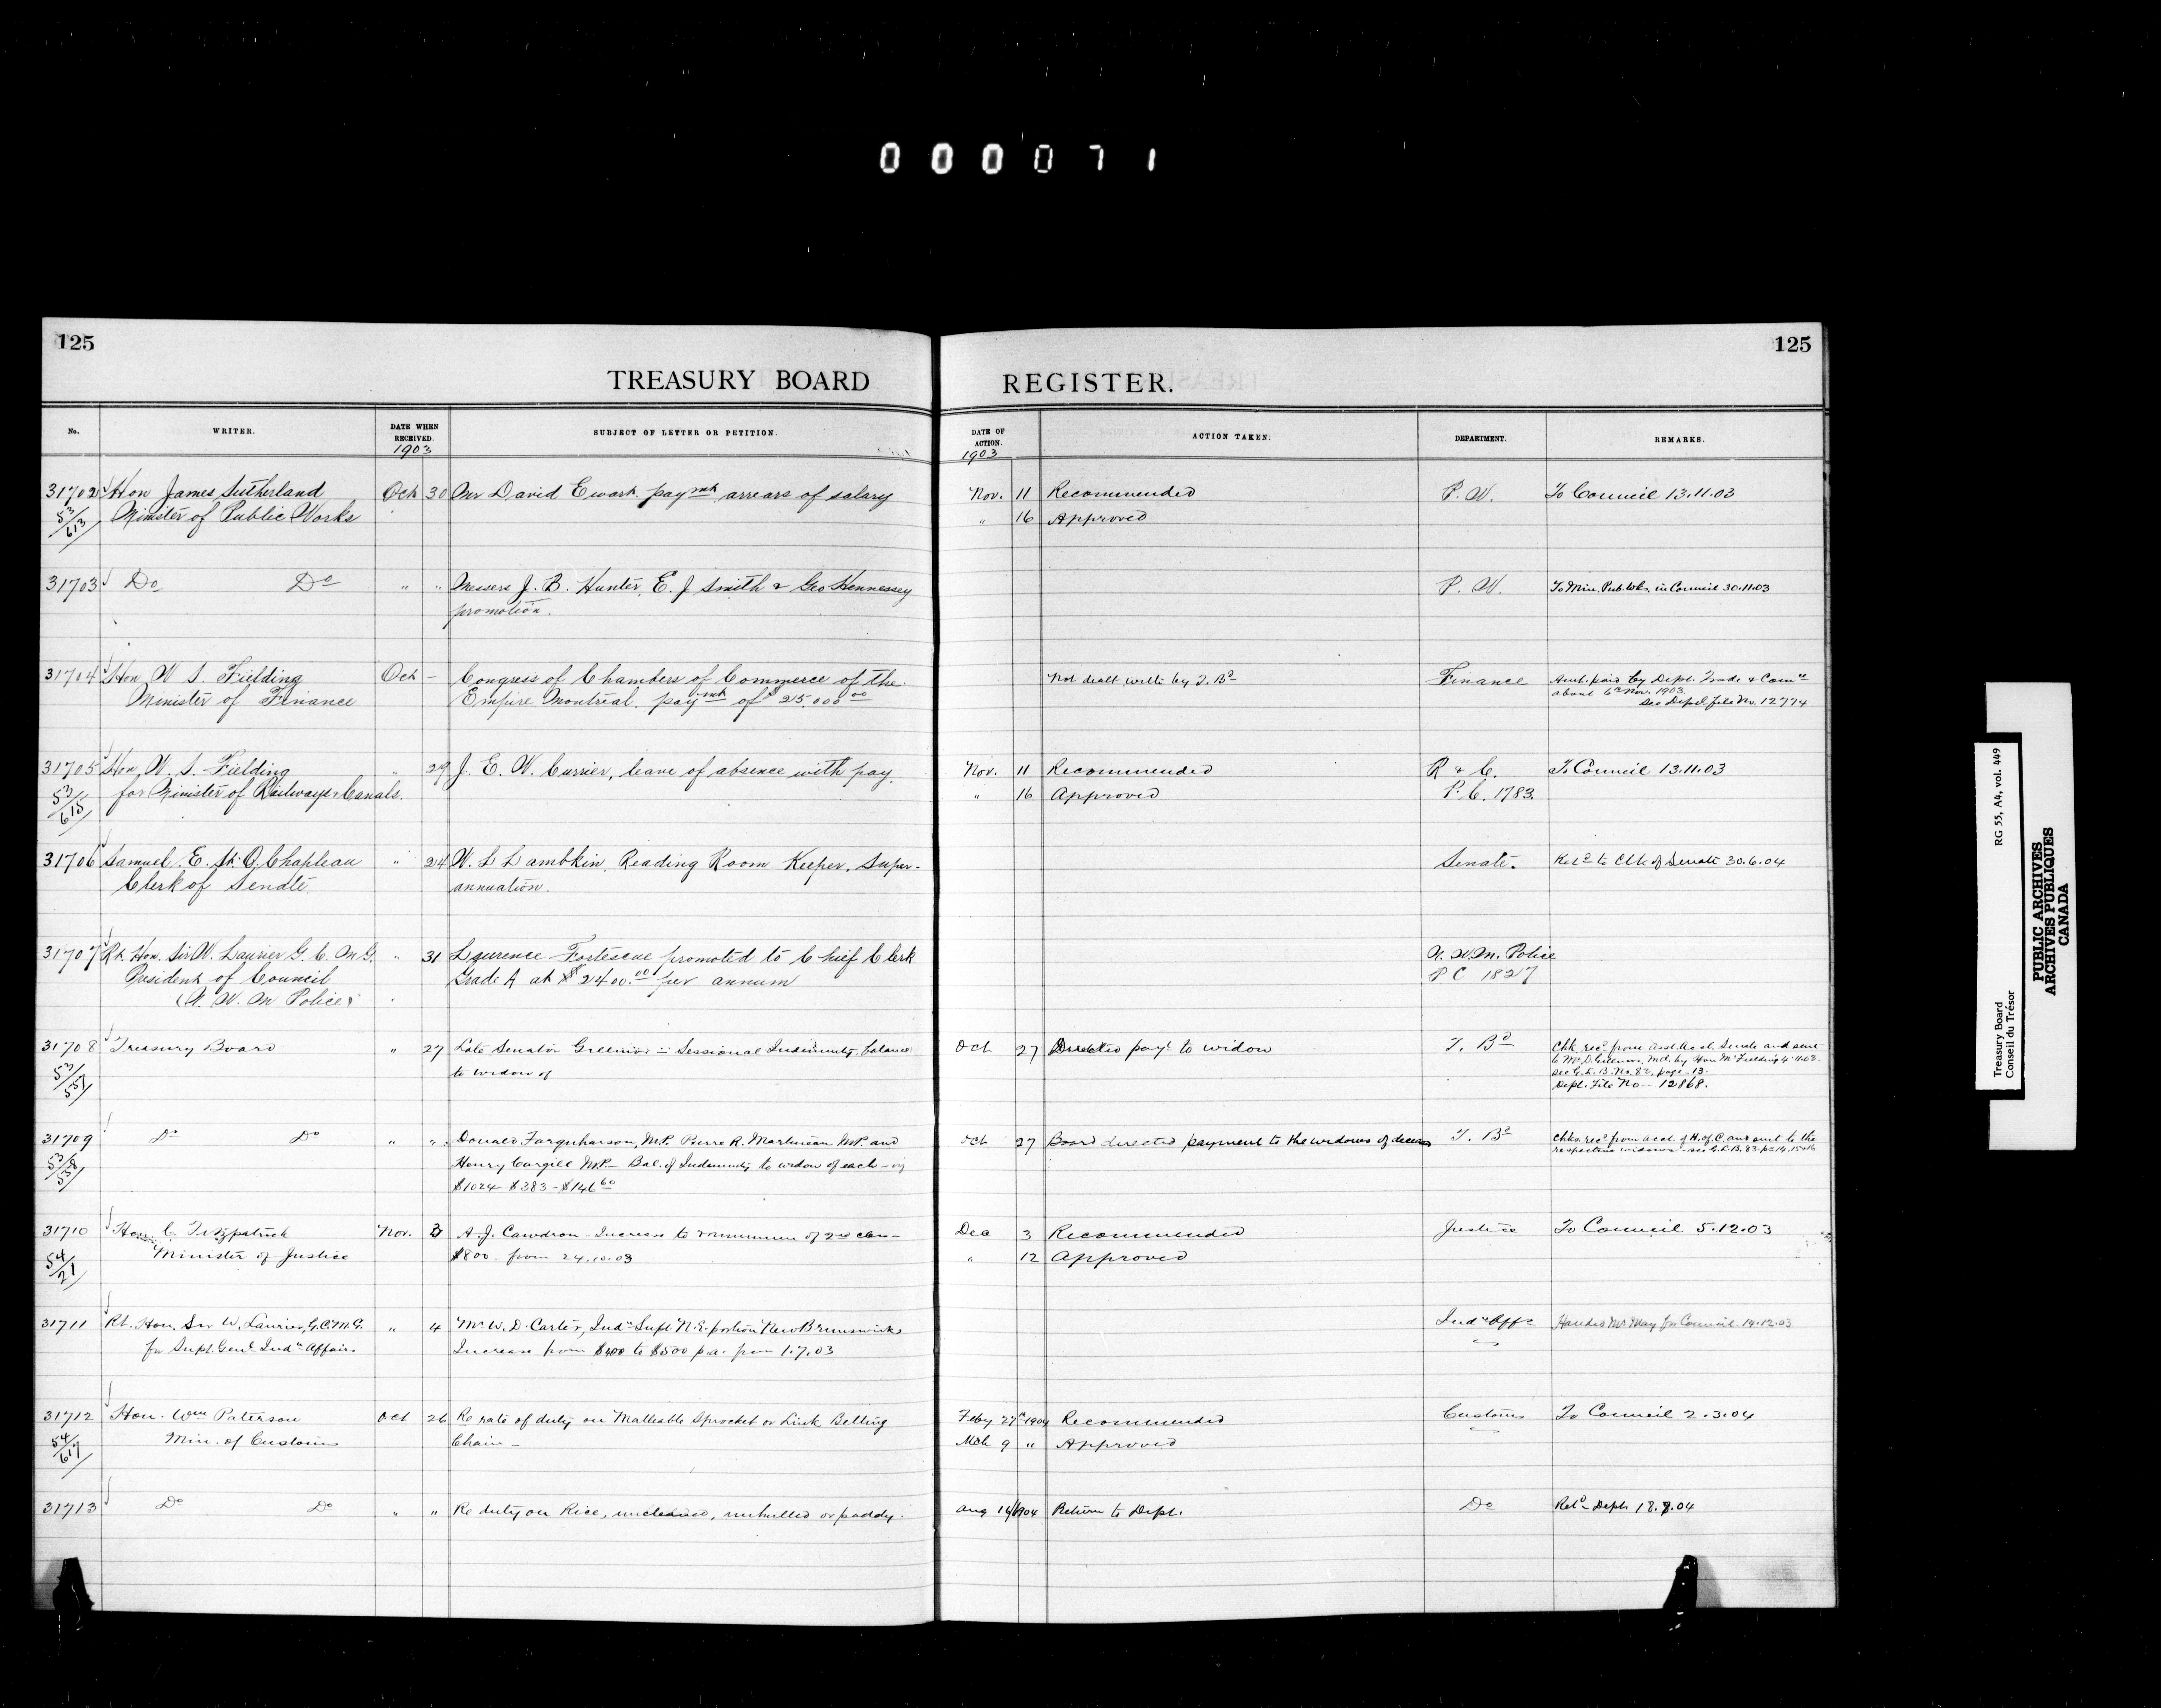 000071
125
125
TREASURY BOARD REGISTER.
No. WRITER. DATE WHEN RECEIVED. 1903 SUBJECT OF LETTER OR PETITION. DATE OF ACTION. 1903 ACTION TAKEN. DEPARTMENT. REMARKS.
31702 Hon James Sutherland Oct 30 Mr David Ewart. paymnt arrears of salary Nov. 11 Recommended P. W. To Council 13.11.03
53/613 Minister of Public Works " 16 Approved
31703 Do Do " " Messers J. B. Hunter, E. J Smith & Geo Hennessey P. W. To Min. Pub. Wks. in Council 30.11.03
promotion.
31704 Hon W S. Fielding Oct - Congress of Chambers of Commerce of the Not dealt with by T. Bd Finance Amt. paid by Dept. Trade & Comce
Minister of Finance Empire Montreal. paymnt of $25.000 00 about 6th Nov. 1903
see Deptl file No. 12774
31705 Hon. W. S. Fielding " 29 J. E. W. Currier, leave of absence with pay. Nov. 11 Recommended R & C. To Council 13.11.03
53/615 for Minister of Railways & Canals. " 16 Approved P. C. 1783.
31706 Samuel. E. St. O. Chapleau " 24 W. L Lambkin, Reading Room Keeper. Super- Senate. Retd to Clk of Senate 30.6.04
Clerk of Senate. annuation.
31707 Rt. Hon. Sir W. Laurier G. C. M G. " 31 Laurence Fortescue promoted to Chief Clerk N. W. M. Police
President of Council Grade A at $2400.00 per annum P C 1827
(N. W. M Police)
31708 Treasury Board " 27 Late Senator Greenior Sessional Indemnity, balance Oct 27 Directed payt to widow T. Bd Chk. recd from Asst. Acct. Senate and sent
53/51 to widow of by Hon Mr Fielding 4.11.03
see G. L. B. No. 82. page 13.
Dept. File No- 12868.
31709 Do Do " " Donald Farquharson, M.P. Pierre R. Martineau M.P. and Oct 27 Board directed payment to the widows of T. Bd Chks. recd from acct. of H. of C. and sent to the
Henry Cargill M.P.- Bal. of Indemnity to widow of each - respective widows - see G. L. B. 83
$1024 - $383 - $146 60
31710 Hon. C. Fitzpatrick Nov. 3 A. J. Cawdron - Increase to of 2nd class - Dec 3 Recommended Justice To Council 5.12.03
54/21 Minister of Justice $800 - from 24.10.03 " 12 Approved
31711 Rt. Hon. Sir W. Laurier, G.C.M.G. " 4 Mr W. D. Carter, Indn Supt N.E. portion New Brunswick Indn Affs Handed Mr May for Council 14.12.03
for Supt. Genl Indn Affairs Increase from $400 to $500 p.a. from 1.7.03
31712 Hon. Wm Paterson Oct 26 Re rate of duty on Malleable Sprocket or Link Belting Feby 27th 1904 Recommended Customs To Council 2.3.04
54/617 Min. of Customs Chain - Mch 9 " Approved
31713 Do Do " " Re duty on Rice, uncleaned, unhulled or paddy. Aug 1904 Return to Dept. Do Retd Dept. 18.8.04
Treasury Board RG 55, A4, vol. 449
Conseil du Trésor
PUBLIC ARCHIVES
ARCHIVES PUBLIQUES
CANADA